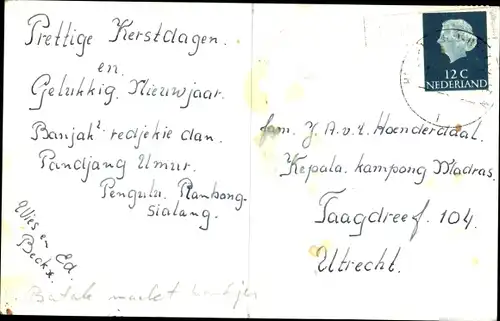 Prettige Kerstdagen.
en
Gelukkig. Nieuwjaar.
Banjak² redjekie dan.
Pandjang Umur.
Pengulu. Rambong-
sialang.
Wies en Ed.
Beckx.
Batak
12 C
NEDERLAND
fam. J. A. v. d. Haenderdaal.
Kepala. kampong Madras.
Taagdreef. 104.
Utrecht.